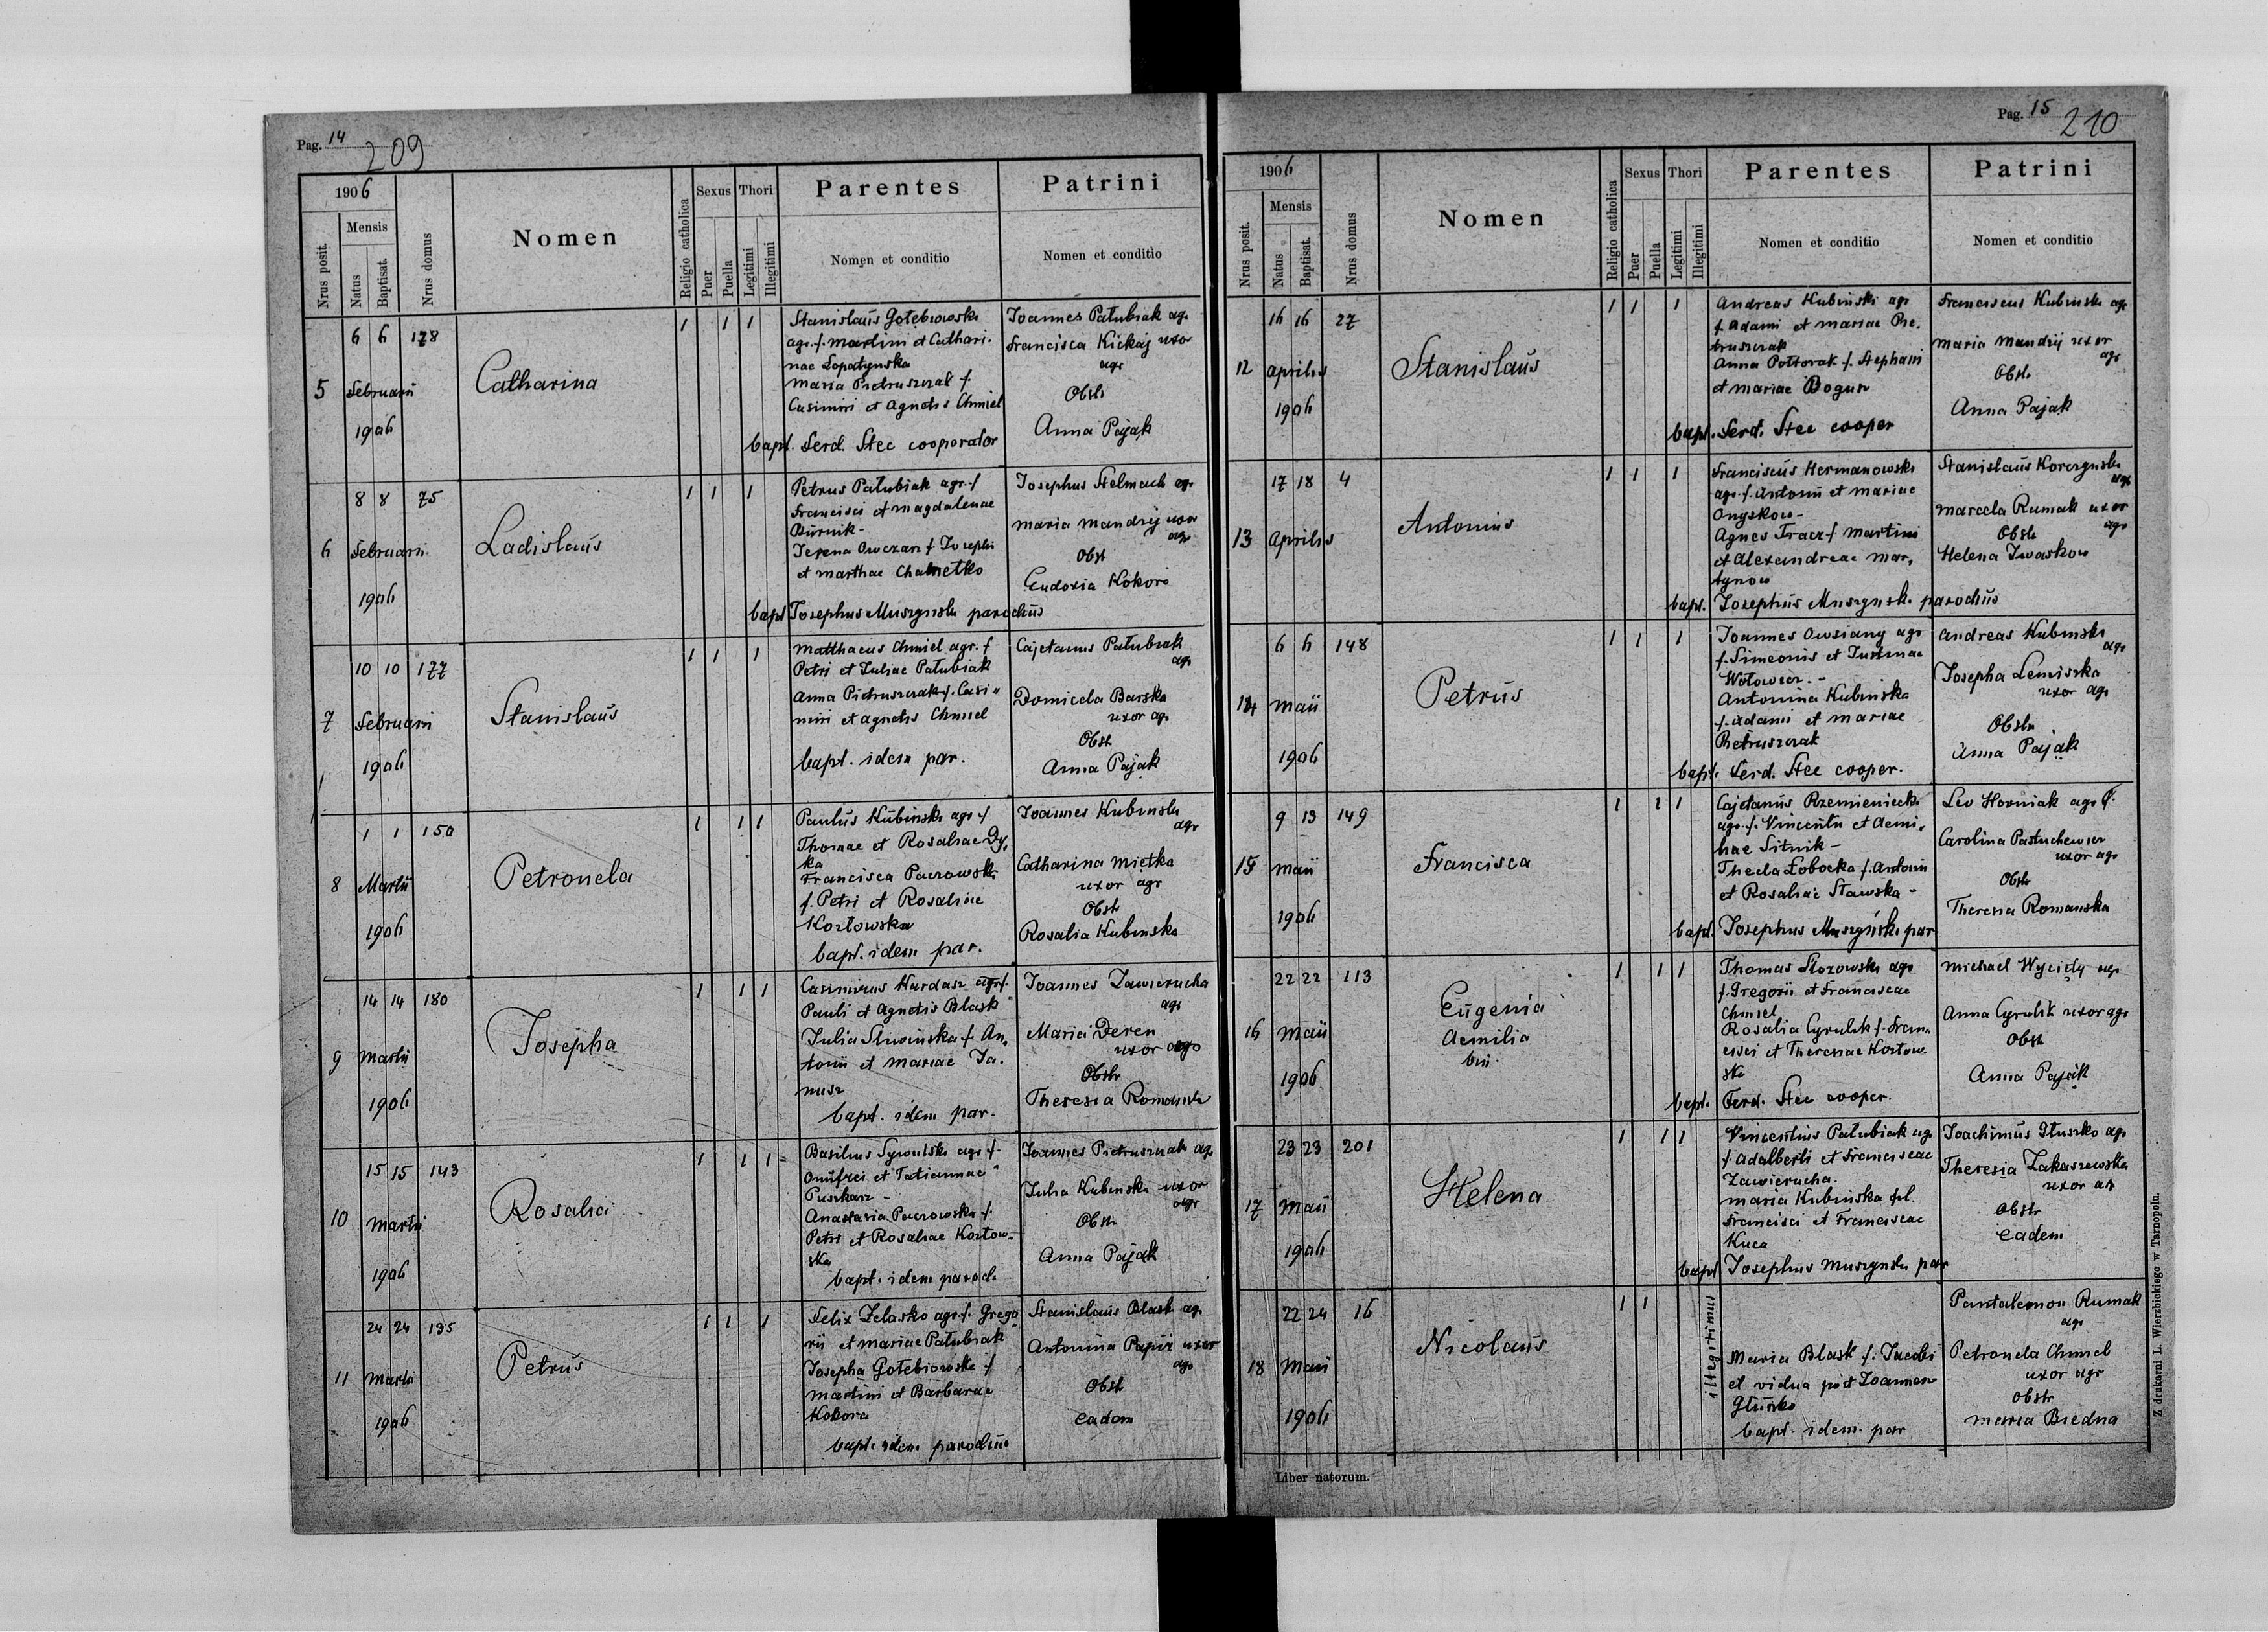 Pag. 14
209
1906
Nrus posit.
Mensis
Natus
Baptisat.
Nrus domus
Nomen
Religio catholica
Sexus
Puer
Puella
Thori
Legitimi
Illegitimi
Parentes
Nomen et conditio
Patrini
Nomen et conditio
5
6 6 178
Februarii
1906
Catharina
1 1 1
Stanislaus Gołębiowski
agr. f. Martini et Cathari-
nae Łopatynska
Maria Pietruszczak f.
Casimiri et Agnetis Chmiel
bapt. Ferd. Stec cooperator
Joannes Pałubiak agr
Francisca Kickaj uxor
agr
Obstr
Anna Pająk
6
8 8 75
Februarii
1906
Ladislaus
1 1 1
Petrus Pałubiak agr. f
Francisci et Magdalenae
Burnik -
Terena Owczar f. Josephi
et Marthae
bapt Josephus Muszynski parochus
Josephus Stelmach agr
Maria Mandrij uxor
agr
Obst
Eudoxia Kokor
7
10 10 177
Februarii
1906
Stanislaus
1 1 1
Matthaeus Chmiel agr. f
Petri et Juliae Pałubiak
Anna Pietruszczak f. Casi-
miri et Agnetis Chmiel
bapt. idem par.
Cajetanus Pałubiak
agr
Domicela Barska
uxor agr
Obst
Anna Pająk
8
1 1 150
Martii
1906
Petronela
1 1 1
Paulus Kubinski agr. f
Thomae et Rosaliae Dy-
ka
Francisca Paczowska
f. Petri et Rosaliae
Kozłowska
bapt. idem par.
Joannes Kubinski
agr
Catharina Miętka
uxor agr
Obstr
Rosalia Kubinska
9
14 14 180
Martii
1906
Josepha
1 1 1
Casimirus Kardasz agr f.
Pauli et Agnetis Blask
Julia Sliwinska f. An-
tonii et Mariae Ja-
nusz
bapt. idem par.
Joannes Zawierucha
agr
Maria Deren
uxor agr
Obstr
Theresia Romanska
10
15 15 143
Martii
1906
Rosalia
1 1 1
Basilius Sywulski agr. f.
Onufrei et Tatiannae
Puszkarz -
Anastasia Paczowska f.
Petri et Rosaliae Kozłow-
ska
bapt. idem paroch
Joannes Pietruszczak agr
Julia Kubinska uxor
agr
Obstr
Anna Pająk
11
24 24 135
Martii
1906
Petrus
1 1 1
Felix Zelasko agr. f. Grego
rii et Mariae Pałubiak
Josepha Gołebiowska f
Martini et Barbarae
Kokora
bapt. idem parochus
Stanislaus Blask agr
Antonina Papiż uxor
agr
Obstr
eadem
Pag. 15
210
1906
Nrus posit.
Mensis
Natus
Baptisat.
Nrus domus
Nomen
Religio catholica
Sexus
Puer
Puella
Thori
Legitimi
Illegitimi
Parentes
Nomen et conditio
Patrini
Nomen et conditio
12
16 16 27
Aprilis
1906
Stanislaus
1 1 1
Andreas Kubinski agr
f. Adami et Mariae Pie-
truszczak
Anna Połtorak f. Stephani
et Mariae Bogun
bapt. Ferd. Stec cooper
Franciscus Kubinski agr
Maria Mandrij uxor
agr
Obstr
Anna Pająk
13
17 18 4
Aprilis
Antonius
1 1 1
Franciscus Hermanowski
agr. f. Antonii et Mariae
Onyskow -
Agnes Tracz f. Martini
et Alexandreae Mar-
tynow
bapt. Josephus Muszynski parochus
Stanislaus Korczynski
agr
Marcela Rumak uxor
agr
Obstr
Helena Iwaskow
14
6 6 148
Maii
1906
Petrus
1 1 1
Joannes Owsiany agr
f. Simeonis et Justinae
Wołowicz. -
Antonina Kubinska
f. Adami et Mariae
Pietruszczak
bapt. Ferd. Stec cooper.
Andreas Kubinski
agr
Josepha Lemiszka
uxor agr
Obstr
Anna Pająk
15
9 13 149
Maii
1906
Francisca
1 1 1
Cajetanus Rzemieniecki
agr. f. Vincentii et Aemi-
liae Sitnik -
Thecla Łobocka f. Antonii
et Rosaliae Stawska -
bapt. Josephus Muszyński par
Leo Horniak agr
Carolina Pastuchewicz
uxor agr
Obstr
Theresia Romanska
16
22 22 113
Maii
1906
Eugenia
Aemilia
bin.
1 1 1
Thomas Słozowski agr
f. Gregorii et Franciscae
Chmiel
Rosalia Cyrulik f. Fran-
cisci et Theresiae Kozłow-
ska
bapt. Ferd. Stec cooper.
Michael Wycidy agr
Anna Cyrulik uxor agr
Obstr
Anna Pająk
17
23 23 201
Maii
1906
Helena
1 1 1
Vincentius Pałubiak agr
f. Adalberti et Franciscae
Zawierucha.
Maria Kubinska fil.
Francisci et Franciscae
Kuca
bapt Josephus Muszynski par
Joachimus Głuszko agr
Theresia Zakaszewska
uxor agr
Obstr
eadem
18
22 24 16
Maii
1906
Nicolaus
1 1
illegitimus
Maria Blask f. Jacobi
et vidua post Joannem
Głuszko
bapt. idem. par
Pantalemon Rumak
agr
Petronela Chmiel
uxor agr
Obstr
Maria Biedna
Liber natorum.
Z drukarni L. Wierzbickiego w Tarnopolu.